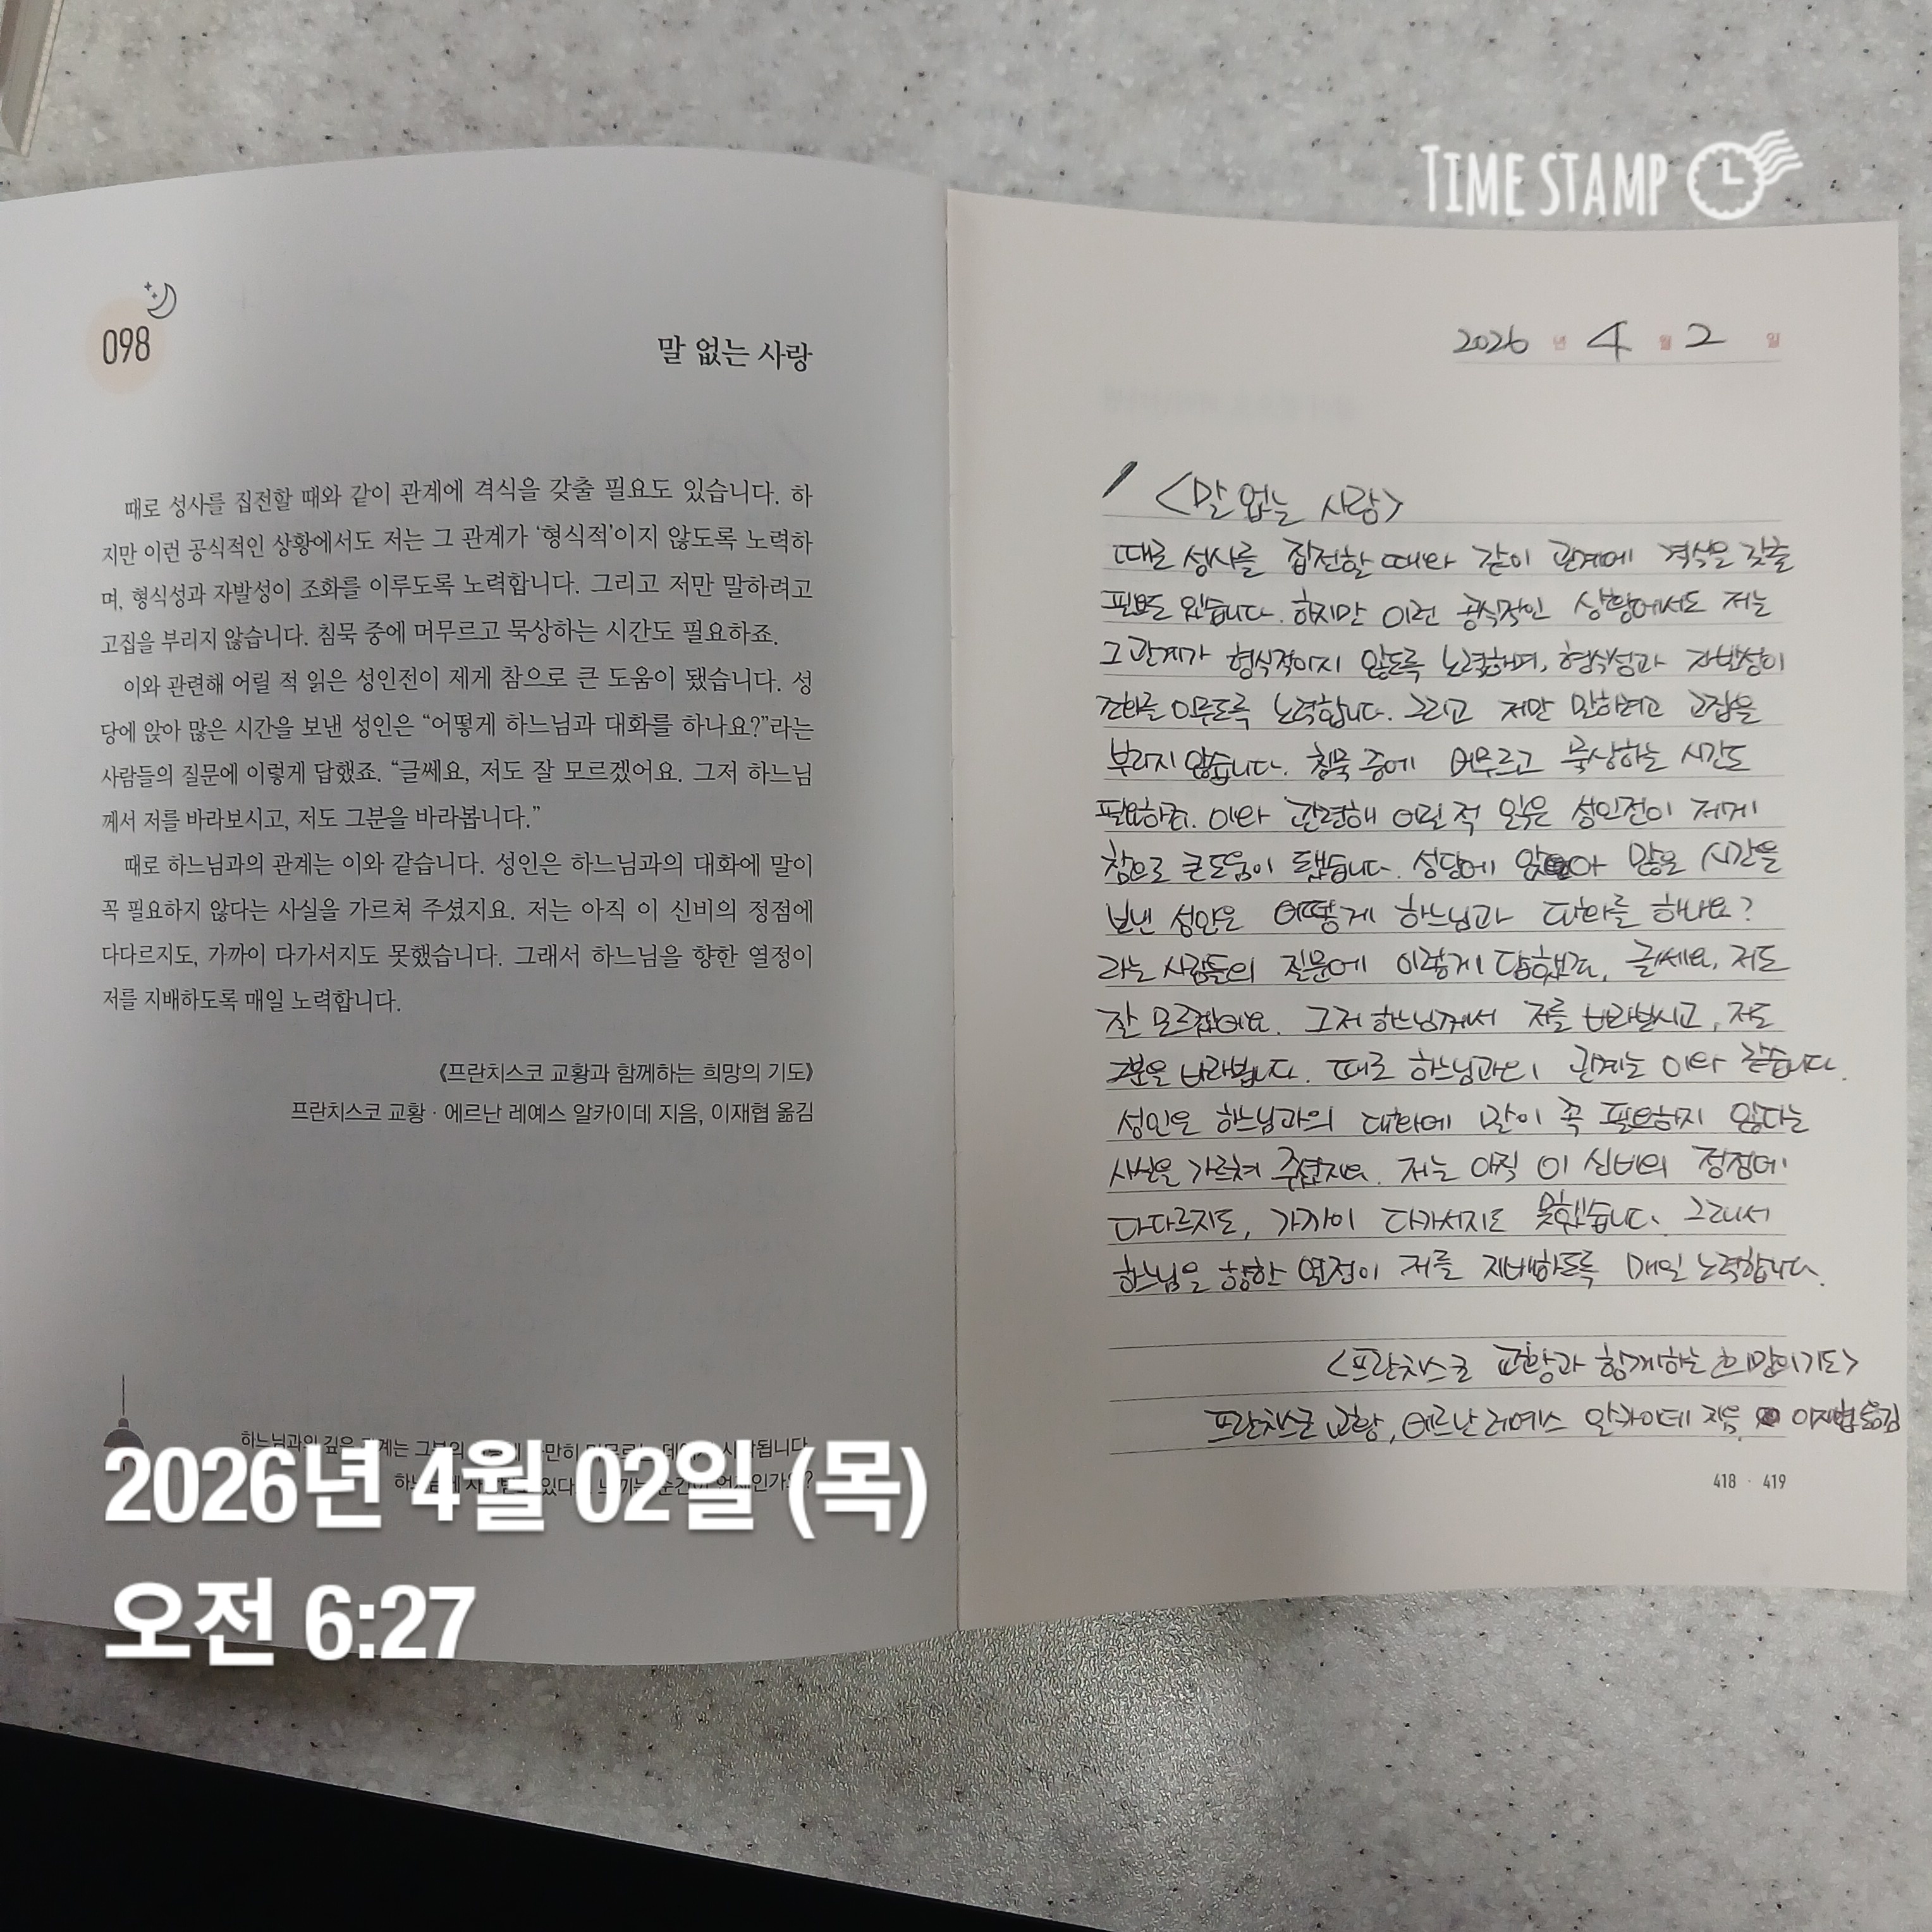 TIME STAMP
098
말 없는 사랑
때로 성사를 집전할 때와 같이 관계에 격식을 갖출 필요도 있습니다. 하
지만 이런 공식적인 상황에서도 저는 그 관계가 ‘형식적’이지 않도록 노력하
며, 형식성과 자발성이 조화를 이루도록 노력합니다. 그리고 저만 말하려고
고집을 부리지 않습니다. 침묵 중에 머무르고 묵상하는 시간도 필요하죠.
이와 관련해 어릴 적 읽은 성인전이 제게 참으로 큰 도움이 됐습니다. 성
당에 앉아 많은 시간을 보낸 성인은 “어떻게 하느님과 대화를 하나요?”라는
사람들의 질문에 이렇게 답했죠. “글쎄요, 저도 잘 모르겠어요. 그저 하느님
께서 저를 바라보시고, 저도 그분을 바라봅니다.”
때로 하느님과의 관계는 이와 같습니다. 성인은 하느님과의 대화에 말이
꼭 필요하지 않다는 사실을 가르쳐 주셨지요. 저는 아직 이 신비의 정점에
다다르지도, 가까이 다가서지도 못했습니다. 그래서 하느님을 향한 열정이
저를 지배하도록 매일 노력합니다.
《프란치스코 교황과 함께하는 희망의 기도》
프란치스코 교황 · 에르난 레예스 알카이데 지음, 이재협 옮김
하느님과의 깊은
2026년 4월 02일 (목)
오전 6:27
2026 년 4 월 2 일
<말 없는 사랑>
때로 성사를 집전할 때와 같이 관계에 격식을 갖출
필요도 있습니다. 하지만 이런 공식적인 상황에서도 저는
그 관계가 형식적이지 않도록 노력하며, 형식성과 자발성이
조화를 이루도록 노력합니다. 그리고 저만 말하려고 고집을
부리지 않습니다. 침묵 중에 머무르고 묵상하는 시간도
필요하죠. 이와 관련해 어릴 적 읽은 성인전이 제게
참으로 큰 도움이 됐습니다. 성당에 앉아 많은 시간을
보낸 성인은 어떻게 하느님과 대화를 하나요?
라는 사람들의 질문에 이렇게 답했죠. 글쎄요, 저도
잘 모르겠어요. 그저 하느님께서 저를 바라보시고, 저도
그분을 바라봅니다. 때로 하느님과의 관계는 이와 같습니다.
성인은 하느님과의 대화에 말이 꼭 필요하지 않다는
사실을 가르쳐 주셨지요. 저는 아직 이 신비의 정점에
다다르지도, 가까이 다가서지도 못했습니다. 그래서
하느님을 향한 열정이 저를 지배하도록 매일 노력합니다.
<프란치스코 교황과 함께하는 희망의 기도>
프란치스코 교황, 에르난 레예스 알카이데 지음, 이재협 옮김
418 · 419